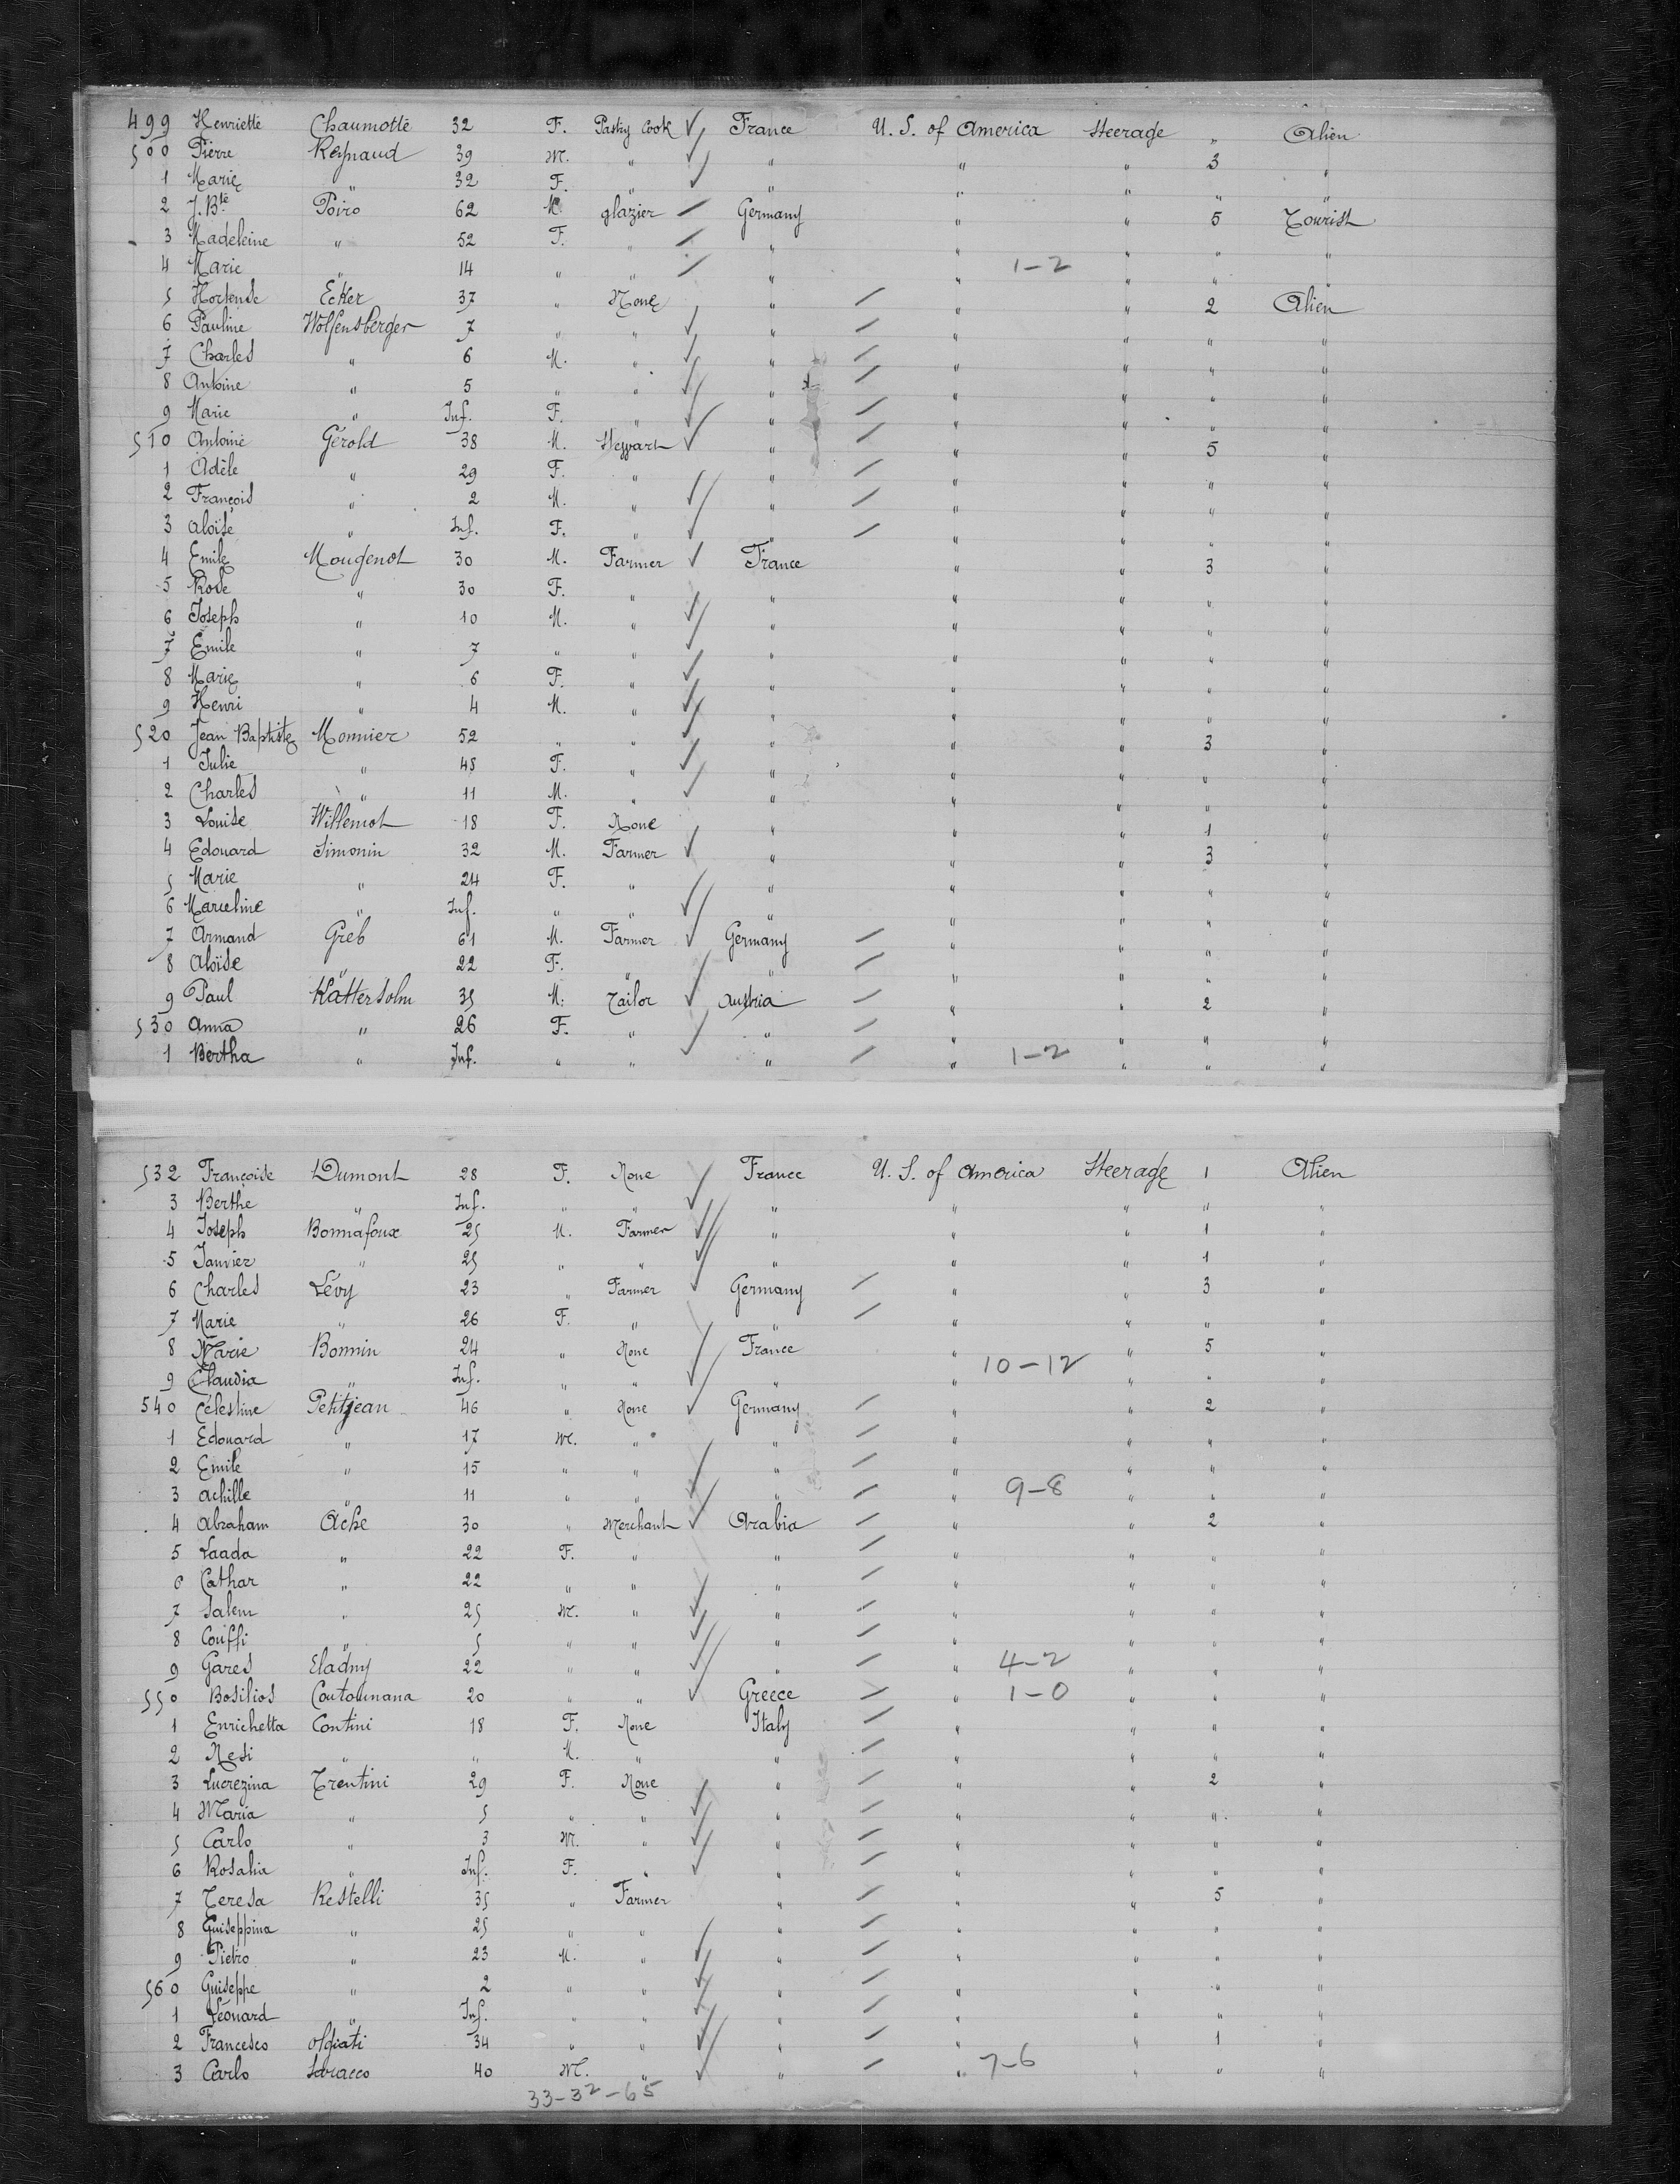 499 Henriette Chaumotte 32 F. Pastry Cook France U. S. of America Steerage " Alien
500 Pierre Reynaud 39 M. " " " " 3 "
1 Marie " 32 F. " " " " " "
2 J. Bte Poiro 62 M. glazier Germany " " 5 Tourist
3 Madeleine " 52 F. " " " " " "
4 Marie " 14 " " " " 1-2 " " "
5 Hortense Ecker 37 " None " " " 2 Alien
6 Pauline Wolfensberger 7 " " " " " " "
7 Charles " 6 M. " " " " " "
8 Antoine " 5 " " " " " " "
9 Marie " Inf. F. " " " " " "
510 Antoine Gérold 38 M. " " " 5 "
1 Adèle " 29 F. " " " " " "
2 François " 2 M. " " " " " "
3 Aloïse " Inf. F. " " " " " "
4 Emile Mougenot 30 M. Farmer France " " 3 "
5 Rose " 30 F. " " " " " "
6 Joseph " 10 M. " " " " " "
7 Emile " 7 " " " " " " "
8 Marie " 6 F. " " " " " "
9 Henri " 4 M. " " " " " "
520 Jean Baptiste Monnier 52 " " " " " 3 "
1 Julie " 48 F. " " " " " "
2 Charles " 11 M. " " " " " "
3 Louise Willemot 18 F. None " " " 1 "
4 Edouard Simonin 32 M. Farmer " " " 3 "
5 Marie " 24 F. " " " " " "
6 Marceline " Inf. " " " " " " "
7 Armand Greb 61 M. Farmer Germany " " " "
8 Aloïse " 22 F. " " " " " "
9 Paul Kattersolm 35 M. Tailor Austria " " 2 "
530 Anna " 26 F. " " " " " "
1 Bertha " Inf. " " " " 1-2 " " "
532 Françoise Dumont 28 F. None France U. S. of America Steerage 1 Alien
3 Berthe " Inf. " " " " " " "
4 Joseph Bonnafoux 25 M. Farmer " " " 1 "
5 Janvier " 25 " " " " " 1 "
6 Charles Lévy 23 " Farmer Germany " " 3 "
7 Marie " 26 F. " " " " " "
8 Marie Bonnin 24 " None France " " 5 "
9 Claudia " Inf. " " " " 10-12 " " "
540 Célestine Petitjean 46 " None Germany " " 2 "
1 Edouard " 17 M. " " " " " "
2 Emile " 15 " " " " " " "
3 Achille " 11 " " " " 9-8 " " "
4 Abraham Ache 30 " Merchant Arabia " " 2 "
5 Laada " 22 F. " " " " " "
6 Cathar " 22 " " " " " " "
7 Salem " 25 M. " " " " " "
8 Couffi " 5 " " " " " " "
9 Gares Eladny 22 " " " " 4-2 " " "
550 Bosilios Coutoumana 20 " " Greece " 1-0 " " "
1 Enrichetta Contini 18 F. None Italy " " " "
2 Nesi " " M. " " " " " "
3 Lucrezina Trentini 29 F. None " " " 2 "
4 Maria " 5 " " " " " " "
5 Carlo " 3 M. " " " " " "
6 Rosalia " Inf. F. " " " " " "
7 Teresa Restelli 35 " Farmer " " " 5 "
8 Guiseppina " 25 " " " " " " "
9 Pietro " 23 M. " " " " " "
560 Guiseppe " 2 " " " " " " "
1 Léonard " Inf. " " " " " " "
2 Francesco Olgiati 34 " " " " " 1 "
3 Carlo Saracco 40 M. " " " 7-6 " " "
33-32-65